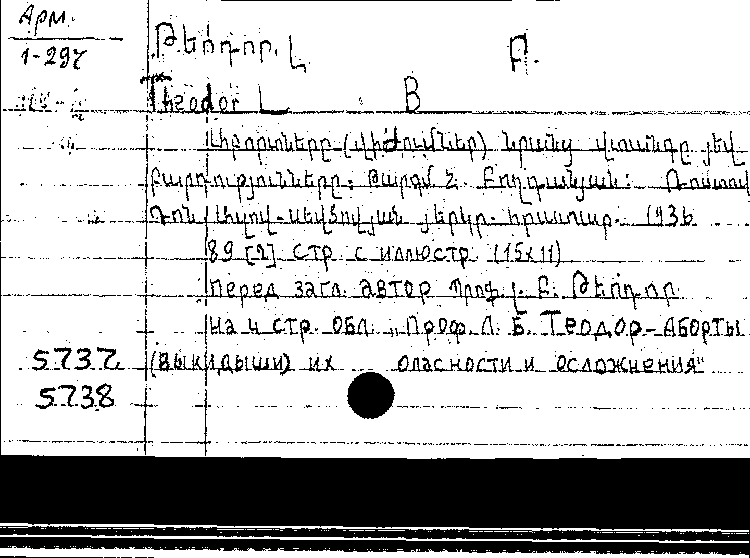 Арм.
1-297
Թեոդոր. Լ Բ.
Theodor L B
(վիժումներ) նրանց վտանգը յեվ
բարդությունները: Թարգմ Հ. Բողդանյան: Ռոստով
Դոն յերկր. հրատար. 1936
89 [2] стр с иллюстр (15x11)
перед загл. автор Պրոֆ. Լ. Բ. Թեոդոր
на 4 стр. обл. „Проф. Л. Б. Теодор-Аборты
5737 (выкидыши) их опасности и осложнения"
5738